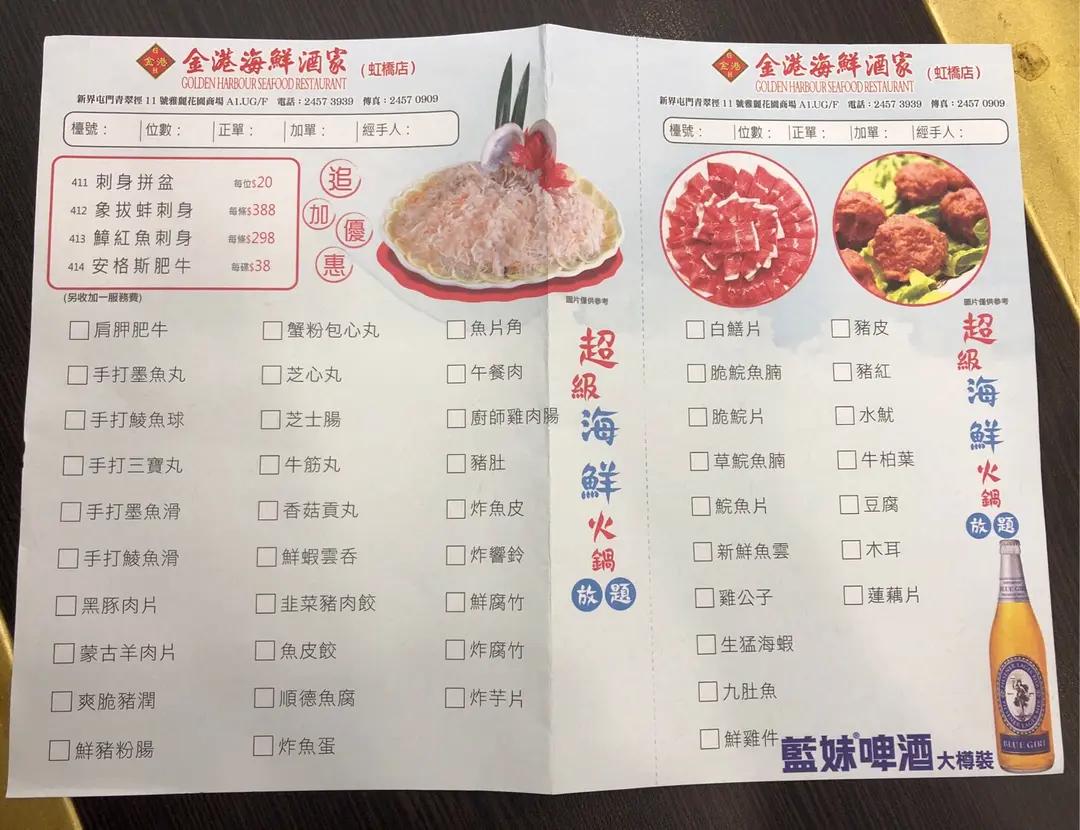 金港海鮮酒家 (虹橋店)
GOLDEN HARBOUR SEAFOOD RESTAURANT
新界屯門青翠徑 11 號雅麗花園商場 A1.UG/F 電話：2457 3939 傳真：2457 0909
檯號： 位數： 正單： 加單： 經手人：
411 刺身拼盆 每位$20
412 象拔蚌刺身 每條$388
413 鱆紅魚刺身 每條$298
414 安格斯肥牛 每碟$38
追加優惠
(另收加一服務費)
圖片僅供參考
肩胛肥牛
手打墨魚丸
手打鯪魚球
手打三寶丸
手打墨魚滑
手打鯪魚滑
黑豚肉片
蒙古羊肉片
爽脆豬潤
鮮豬粉腸
蟹粉包心丸
芝心丸
芝士腸
牛筋丸
香菇貢丸
鮮蝦雲吞
韭菜豬肉餃
魚皮餃
順德魚腐
炸魚蛋
魚片角
午餐肉
廚師雞肉腸
豬肚
炸魚皮
炸響鈴
鮮腐竹
炸腐竹
炸芋片
超級海鮮火鍋放題
金港海鮮酒家 (虹橋店)
GOLDEN HARBOUR SEAFOOD RESTAURANT
新界屯門青翠徑 11 號雅麗花園商場 A1.UG/F 電話：2457 3939 傳真：2457 0909
檯號： 位數： 正單： 加單： 經手人：
圖片僅供參考
白鱔片
脆鯇魚腩
脆鯇片
草鯇魚腩
鯇魚片
新鮮魚雲
雞公子
生猛海蝦
九肚魚
鮮雞件
豬皮
豬紅
水魷
牛柏葉
豆腐
木耳
蓮藕片
超級海鮮火鍋放題
BLUE GIRL
藍妹®啤酒 大樽裝